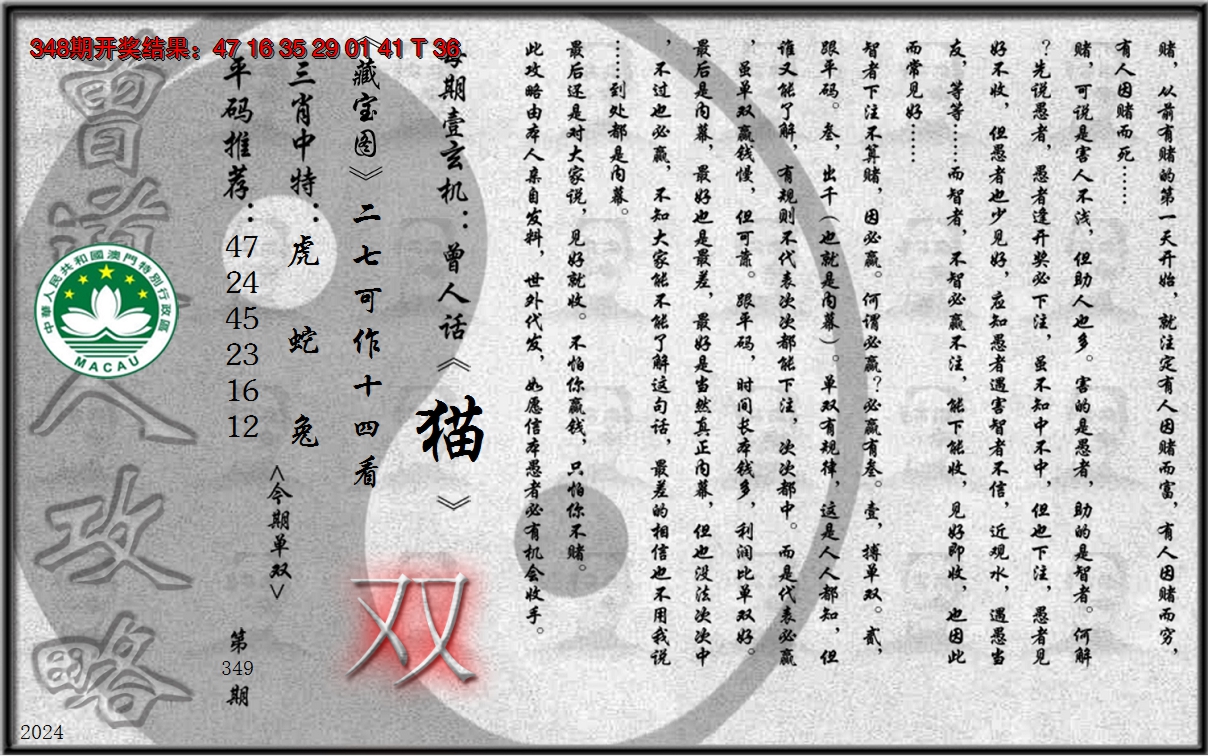 348期开奖结果：47 16 35 29 01 41 T 36
赌，从前有赌的第一天开始，就注定有人因赌而富，有人因赌而穷，
有人因赌而死……
赌，可说是害人不浅，但助人也多。害的是愚者，助的是智者。何解
？先说愚者，愚者逢开奖必下注，虽不知中不中，但也下注，愚者见
好不收，但愚者也少见好，应知愚者遇害智者不信，近观水，遇愚当
友，等等……而智者，不智必赢不注，能下能收，见好即收，也因此
而常见好……
智者下注不算赌，因必赢。何谓必赢？必赢有叁。壹，搏单双。贰，
跟平码。叁，出千（也就是内幕）。单双有规律，这是人人都知，但
谁又能了解，有规则不代表次次都能下注，次次都中。而是代表必赢
，虽单双赢钱慢，但可靠。跟平码，时间长本钱多，利润比单双好。
最后是内幕，最好也是最差，最好是当然真正内幕，但也没法次次中
，不过也必赢，不知大家能不能了解这句话，最差的相信也不用我说
……到处都是内幕。
最后还是对大家说，见好就收。不怕你赢钱，只怕你不赌。
此攻略由本人亲自发料，世外代发，如愿信本愚者必有机会收手。
每期壹玄机：曾人话《猫》
《藏宝图》二七可作十四看
双
三肖中特：虎 蛇 兔
<今期单双>
平码推荐：
47
24
45
23
16
12
第
349
期
曾道人攻略
中華人民共和國澳門特別行政區
MACAU
2024